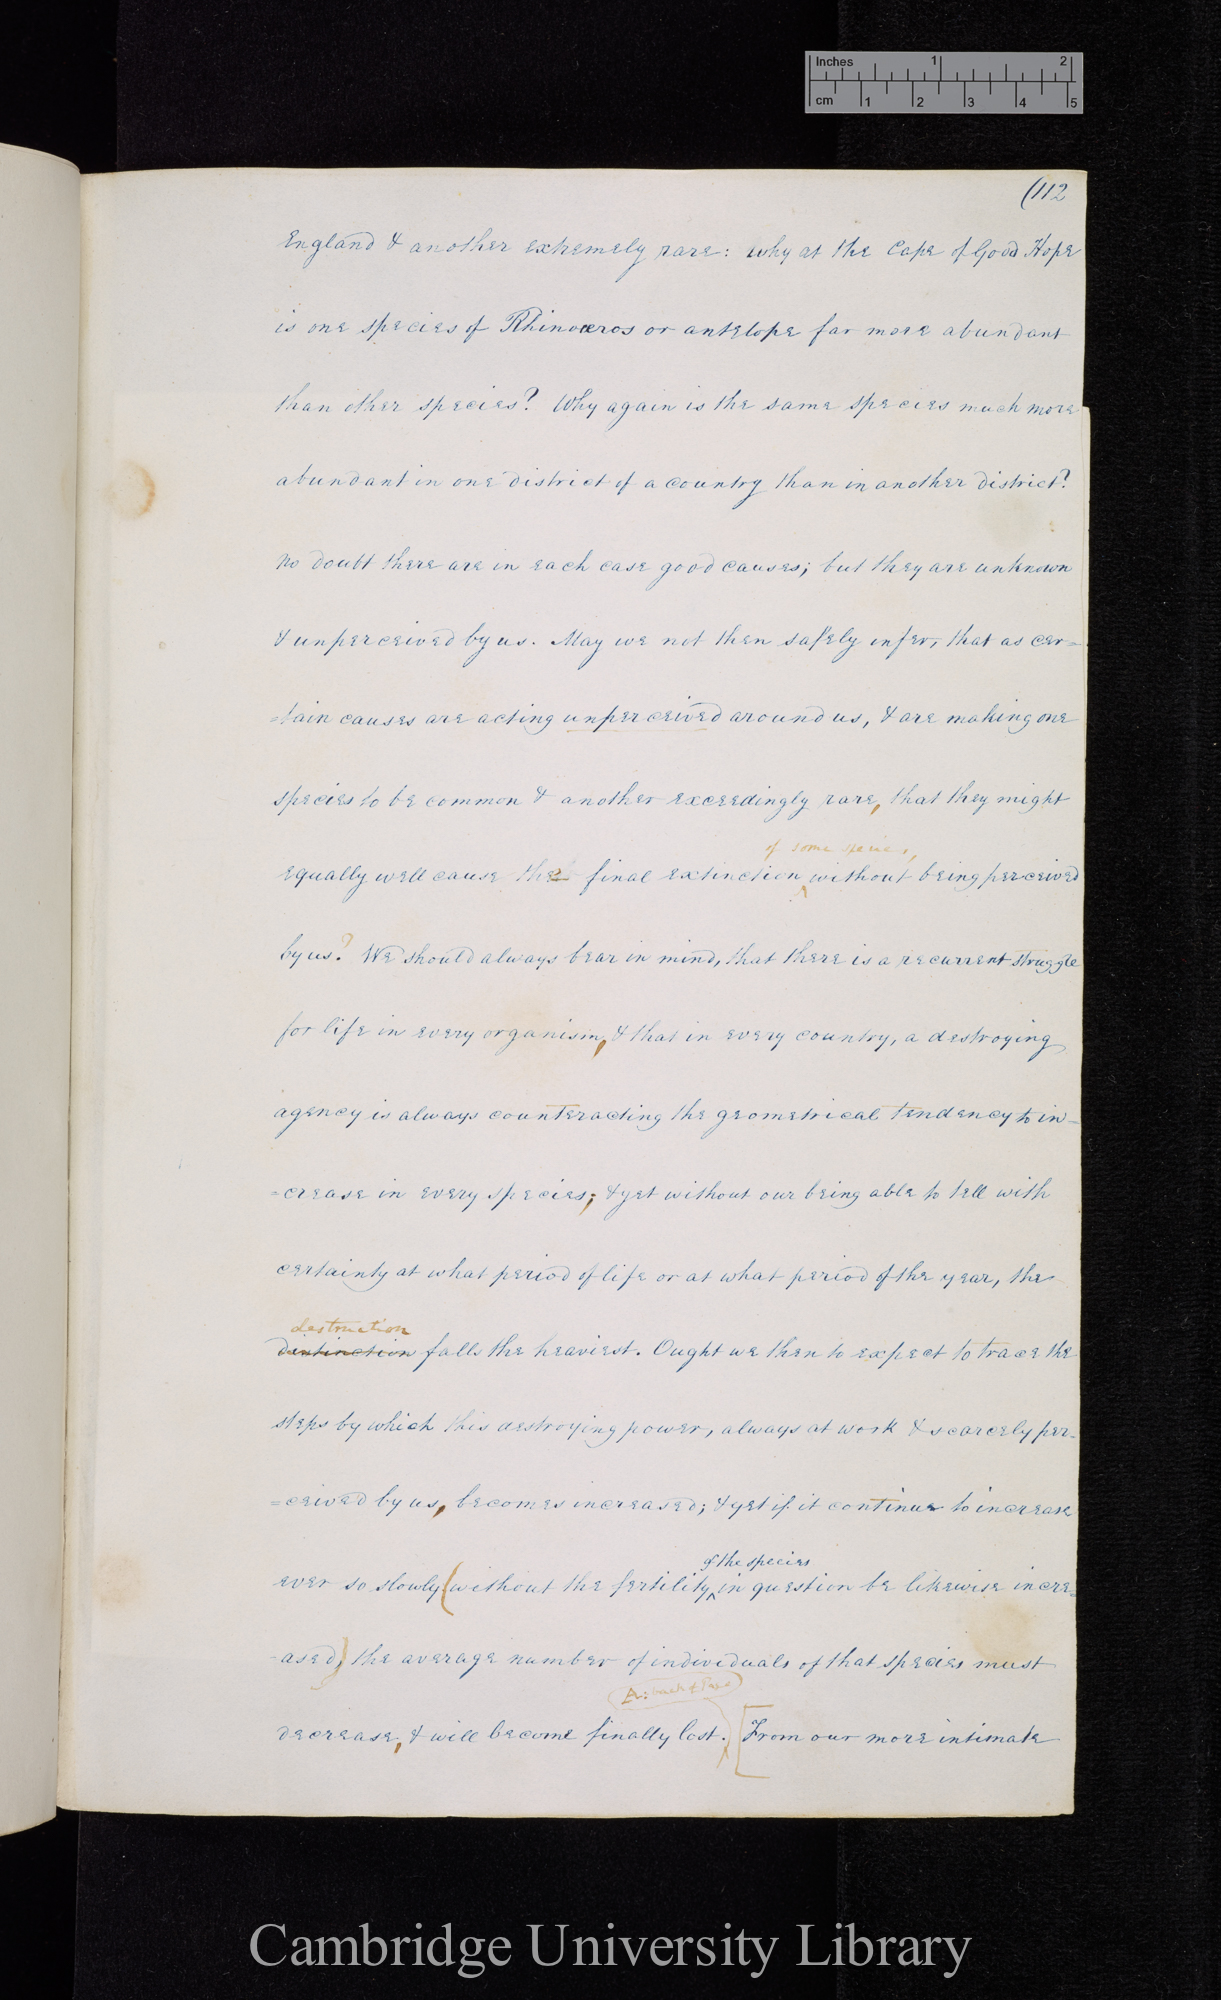 Inches 1 2
cm 1 2 3 4 5
(112
England & another extremely rare: why at the Cape of Good Hope
is one species of Rhinoceros or antelope far more abundant
than other species? Why again is the same species much more
abundant in one district of a country than in another district?
No doubt there are in each case good causes; but they are unknown
& unperceived by us. May we not then safely infer, that as cer=
=tain causes are acting unperceived around us, & are making one
species to be common & another exceedingly rare, that they might
of some species,
equally well cause the final extinction without being perceived
by us? We should always bear in mind, that there is a recurrent struggle
for life in every organism, & that in every country, a destroying
agency is always counteracting the geometrical tendency to in-
=crease in every species; & yet without our being able to tell with
certainty at what period of life or at what period of the year, the
destruction
distinction falls the heaviest. Ought we then to expect to trace the
steps by which this destroying power, always at work & scarcely per-
=ceived by us, becomes increased; & yet if it continue to increase
of the species
ever so slowly (without the fertility in question be likewise incre=
-ased) the average number of individuals of that species must
A: back of Page
decrease, & will become finally lost. [From our more intimate
Cambridge University Library